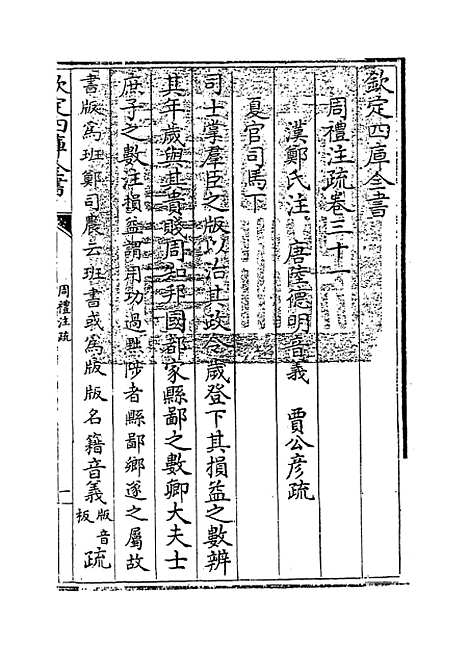 欽定四庫全書
周禮注疏卷三十一
漢鄭氏注 唐陸德明音義 賈公彦疏
夏官司馬下
司士掌羣臣之版以治其政令歲登下其損益之數辨
其年歲與其貴賤周知邦國都家縣鄙之數卿大夫士
庶子之數注損益謂用功過黜陟者縣鄙鄉遂之屬故
書版爲班鄭司農云班書或爲版版名籍音義版音板疏
欽定四庫全書
周禮注疏
一